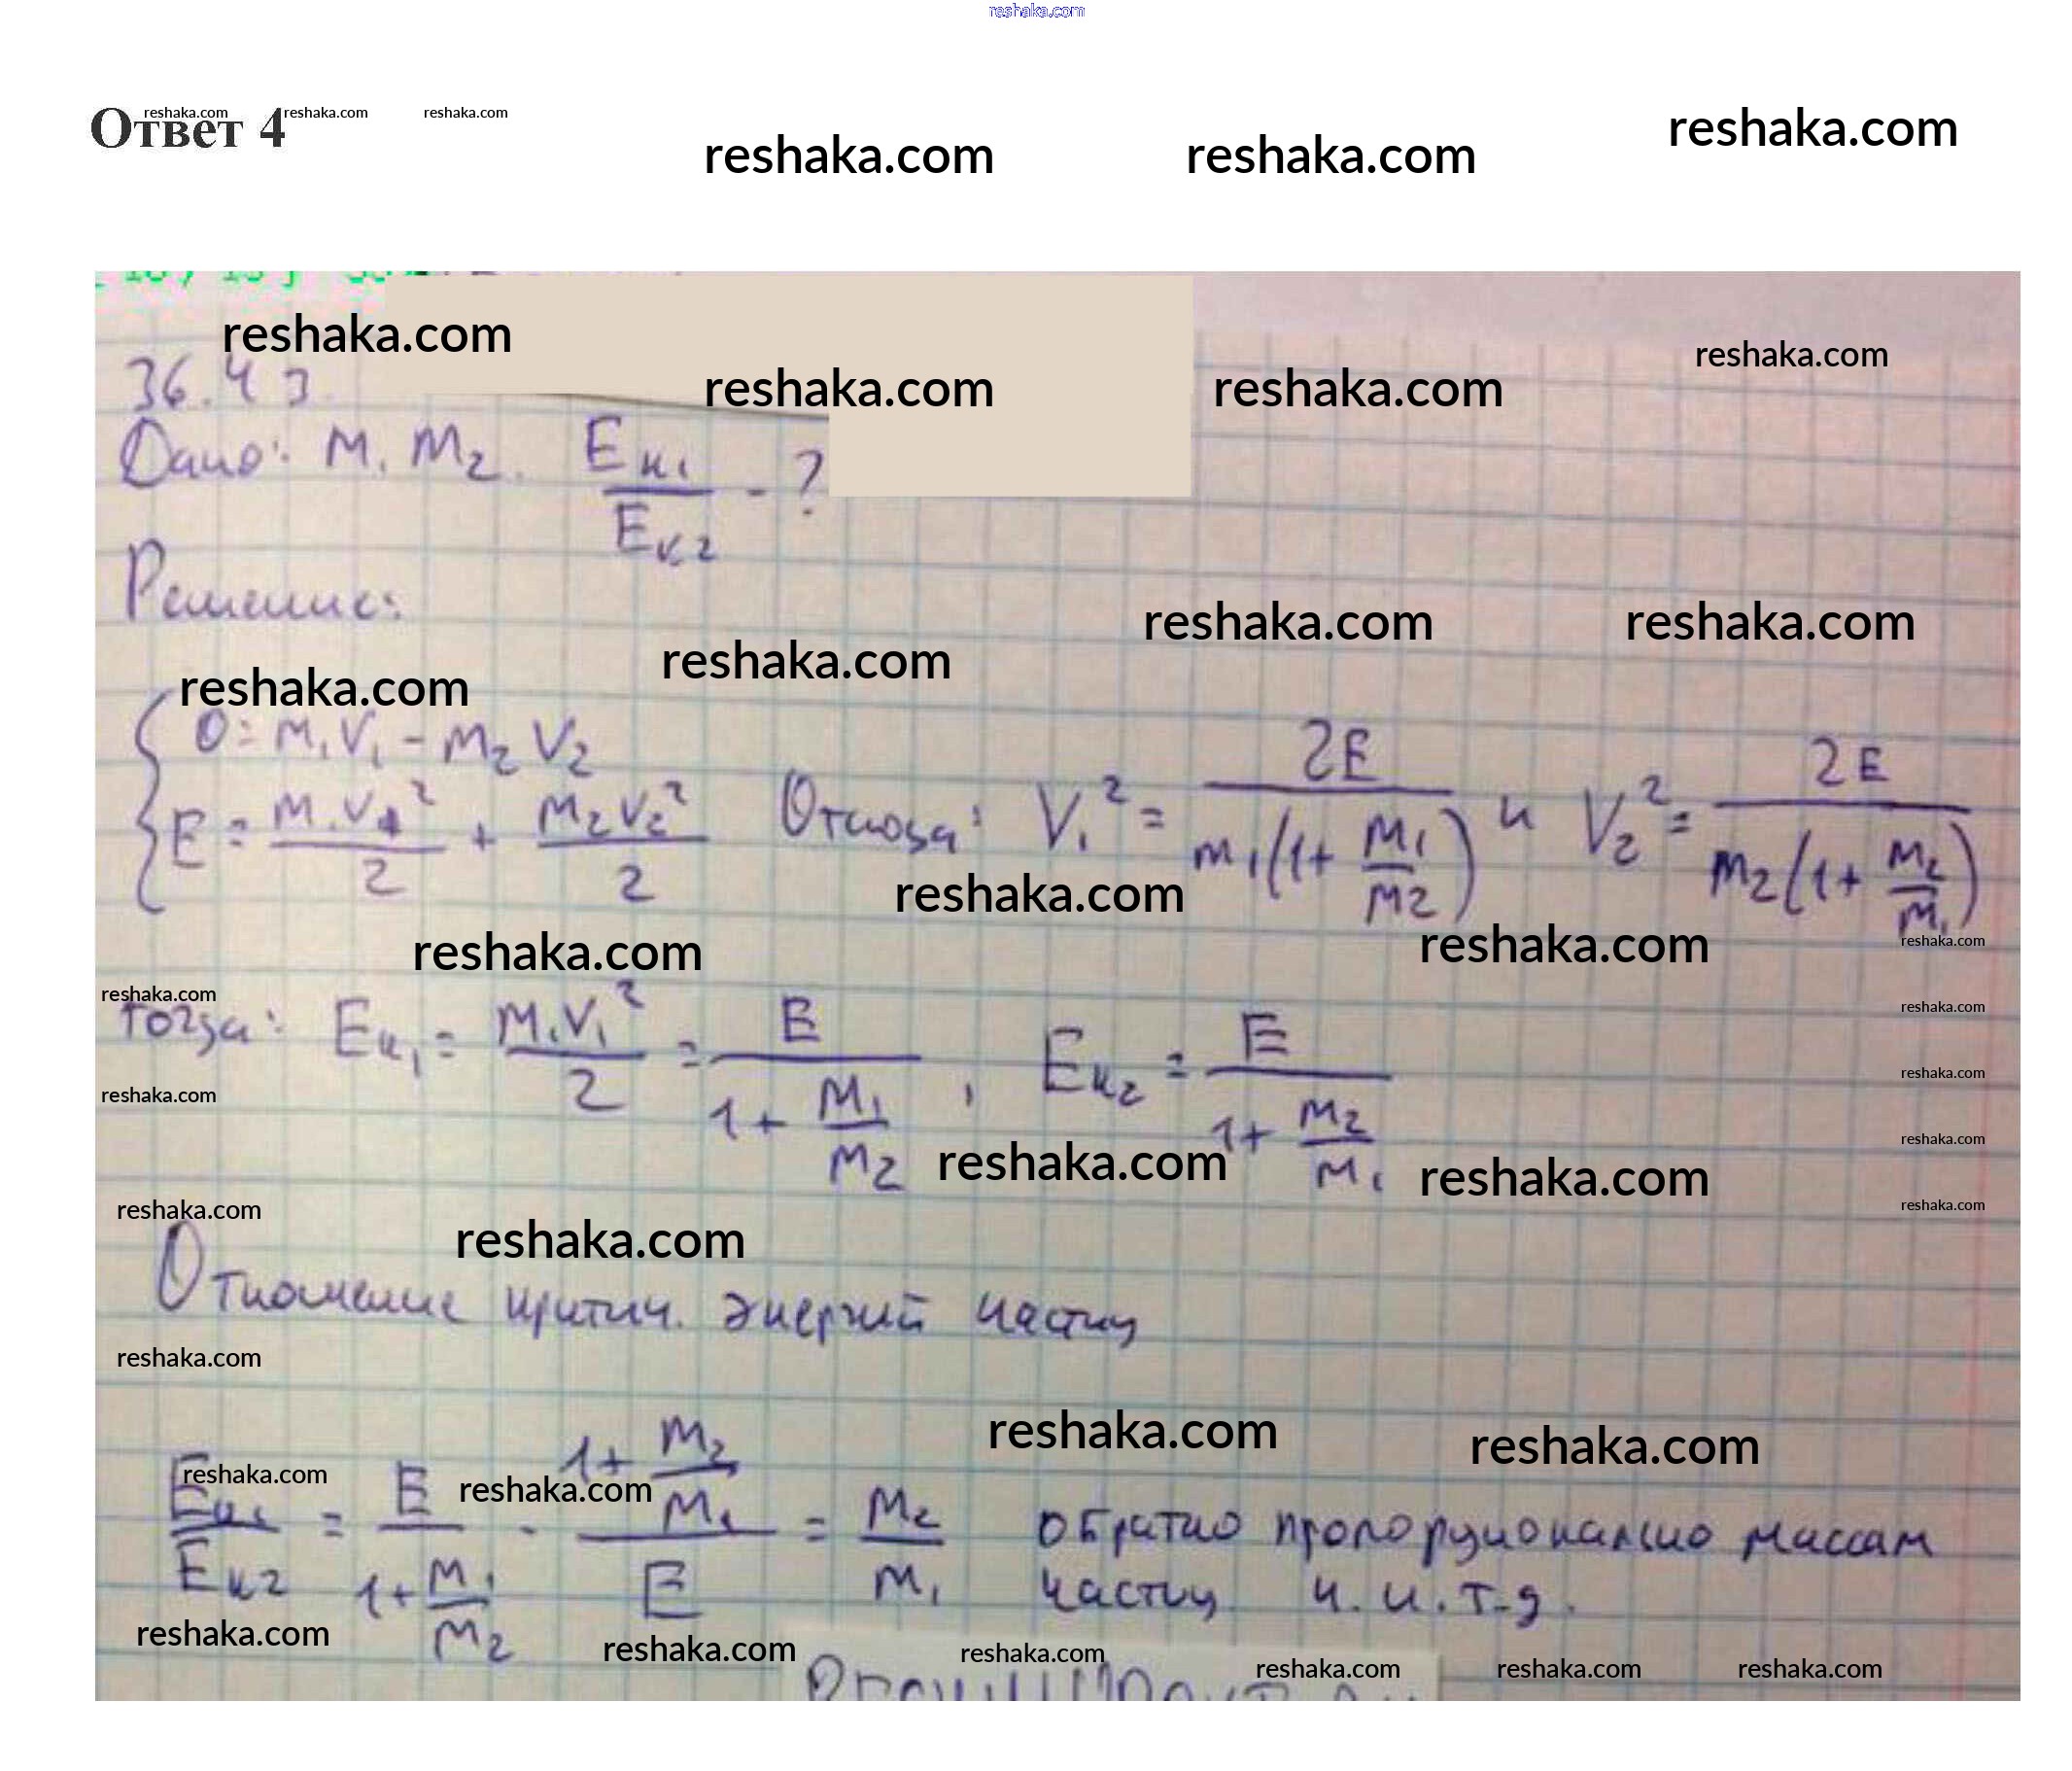 reshaka.com
Ответ 4
reshaka.com reshaka.com reshaka.com
reshaka.com reshaka.com reshaka.com
reshaka.com
36.43.
reshaka.com reshaka.com reshaka.com
Дано: m₁ m₂. Eк₁/Eк₂ - ?
Решение:
reshaka.com reshaka.com reshaka.com reshaka.com
0 = m₁V₁ - m₂V₂
E = m₁V₁²/2 + m₂V₂²/2 Отсюда: V₁² = 2E/(m₁(1 + m₁/m₂)) и V₂² = 2E/(m₂(1 + m₂/m₁))
reshaka.com reshaka.com reshaka.com reshaka.com
reshaka.com reshaka.com
Тогда: Eк₁ = m₁V₁²/2 = E/(1 + m₁/m₂), Eк₂ = E/(1 + m₂/m₁)
reshaka.com reshaka.com
reshaka.com reshaka.com reshaka.com
reshaka.com reshaka.com reshaka.com
Отношение критич. энергий частиц
reshaka.com
reshaka.com reshaka.com
reshaka.com reshaka.com
Eк₁/Eк₂ = E/(1 + m₁/m₂) · (1 + m₂/m₁)/E = m₂/m₁ обратно пропорционально массам
частиц ч.и.т.д.
reshaka.com reshaka.com reshaka.com reshaka.com reshaka.com reshaka.com